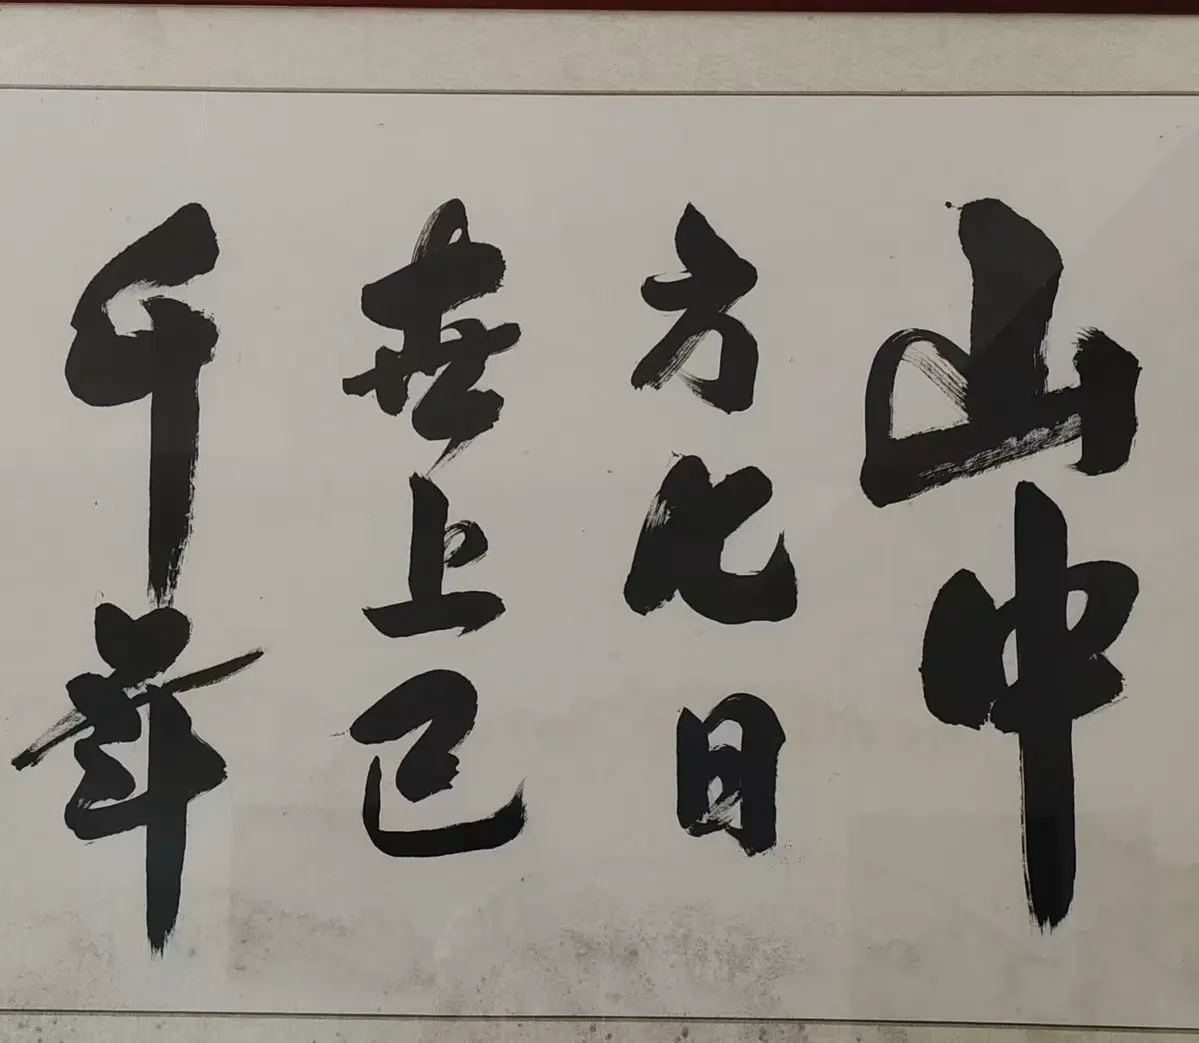 山中
方七日
世上已
千年